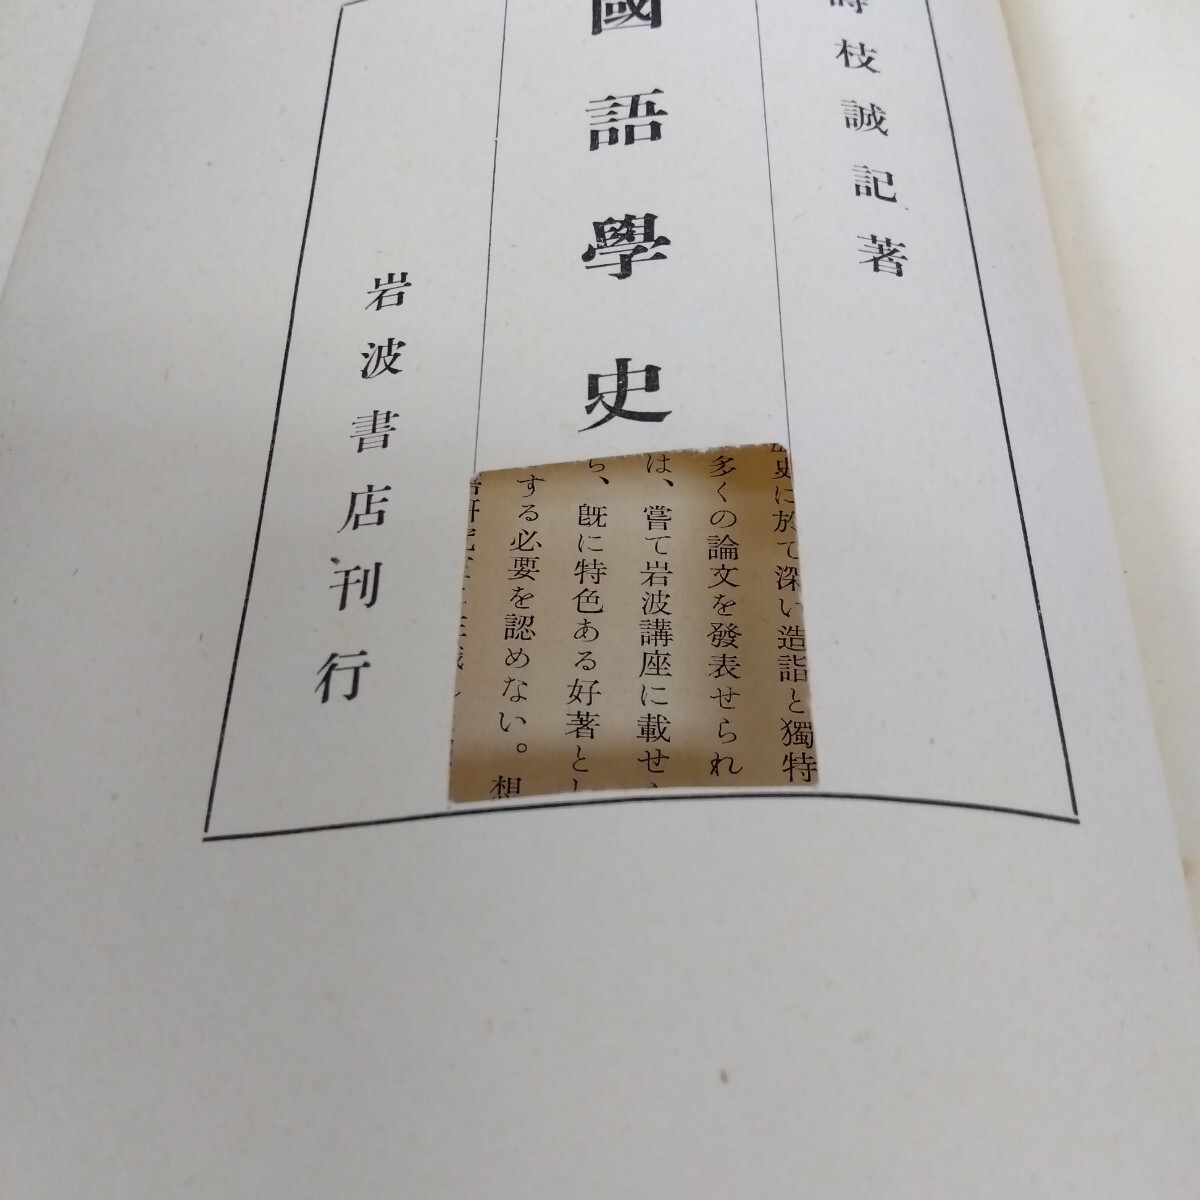 時枝誠記著
國語學史
岩波書店刊行
歷史に於て深い造詣と獨特
多くの論文を發表せられ
は、嘗て岩波講座に載せ
ら、既に特色ある好著とし
する必要を認めない。想